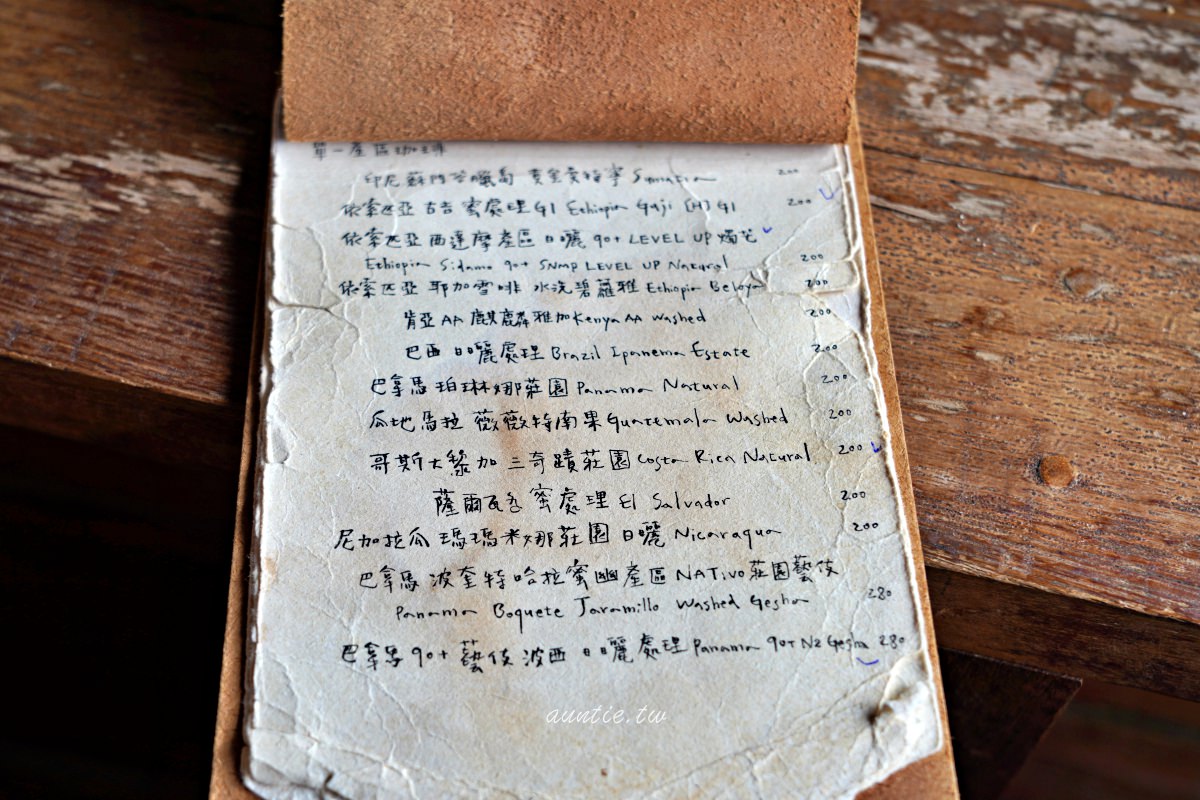 單一產區咖啡
印尼 蘇門答臘島 黃金曼特寧 Sumatra 200
依索匹亞 古吉 蜜處理 G1 Ethiopia Guji G1 200
依索匹亞 西達摩產區 日曬 90+ LEVEL UP 燭芒
Ethiopia Sidamo 90+ SNAP LEVEL UP Natural 200
依索匹亞 耶加雪啡 水洗碧蘿雅 Ethiopia Beloya 200
肯亞 AA 麒麟雅加 Kenya AA Washed 200
巴西 日曬處理 Brazil Ipanema Estate 200
巴拿馬 珀琳娜莊園 Panama Natural 200
瓜地馬拉 薇薇特南果 Guatemala Washed 200
哥斯大黎加 三奇蹟莊園 Costa Rica Natural 200
薩爾瓦多 蜜處理 El Salvador 200
尼加拉瓜 瑪瑪米娜莊園 日曬 Nicaraqua 200
巴拿馬 波奎特 哈拉蜜幽產區 NATIVO 莊園藝伎
Panama Boquete Jaramillo Washed Gesha 280
巴拿馬 90+ 藝伎 波西 日曬處理 Panama 90+ N2 Gesha 280
auntie.tw